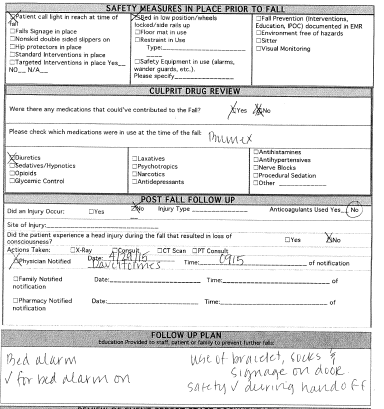 SAFETY MEASURES IN PLACE PRIOR TO FALL
☒Patient call light in reach at time of fall
☐Falls Signage in place
☐Nonskid double sided slippers on
☐Hip protectors in place
☐Standard Interventions in place
☐Targeted Interventions in place Yes__ No__ N/A__
☒Bed in low position/wheels locked/side rails up
☐Floor mat in use
☐Restraint in Use
Type:____________
☐Safety Equipment in use (alarms, wander guards, etc.).
Please specify____________
☐Fall Prevention (Interventions, Education, IPOC) documented in EMR
☐Environment free of hazards
☐Sitter
☐Visual Monitoring
CULPRIT DRUG REVIEW
Were there any medications that could've contributed to the Fall? ☒Yes ☒No
Please check which medications were in use at the time of the fall: Bumex
☒Diuretics
☐Sedatives/Hypnotics
☐Opioids
☐Glycemic Control
☐Laxatives
☐Psychotropics
☐Narcotics
☐Antidepressants
☐Antihistamines
☐Antihypertensives
☐Nerve Blocks
☐Procedural Sedation
☐Other ____________
POST FALL FOLLOW UP
Did an Injury Occur: ☐Yes ☒No Injury Type ____________ Anticoagulants Used Yes__ No
Site of Injury:____________
Did the patient experience a head injury during the fall that resulted in loss of consciousness? ☐Yes ☒No
Actions Taken: ☐X-Ray ☐Consult ☐CT Scan ☐PT Consult
☒Physician Notified Date: 4/29/15 Time: 0915 of notification
☐Family Notified Date:____________ Time:____________ of notification
☐Pharmacy Notified Date:____________ Time:____________ of notification
FOLLOW UP PLAN
Education Provided to staff, patient or family to prevent further fall:
Bed alarm
✓ for bed alarm on
use of bracelet, socks &
signage on door
safety ✓ during handoff